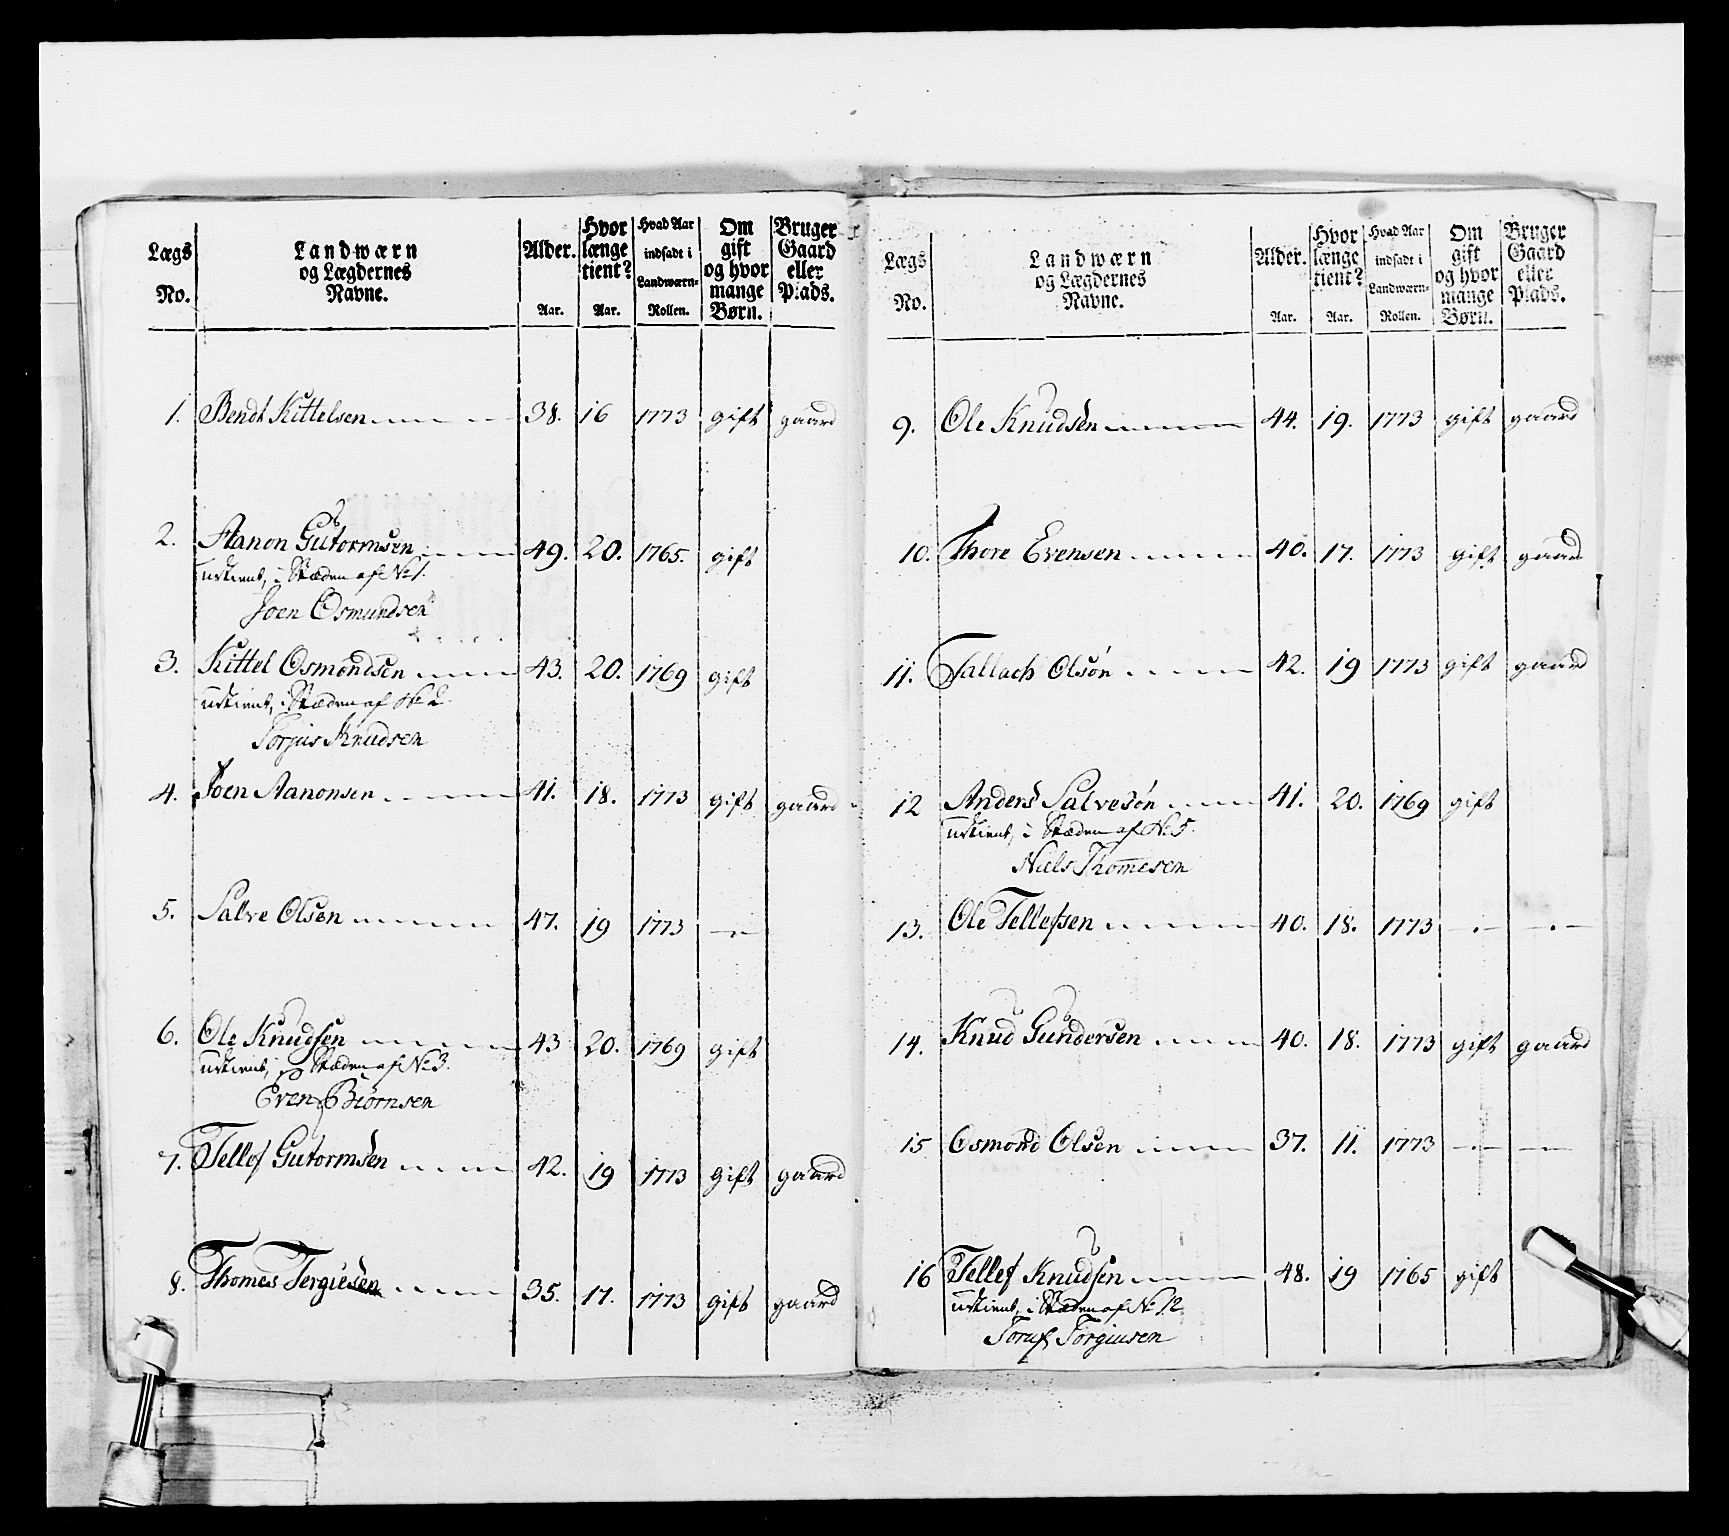 Lægs No. | Landwærn og Lægdernes Navne. | Alder. Aar. | Hvor længe tient? Aar. | Hvad Aar indsadt i Landwærn-Rollen. | Om gift og hvor mange Børn. | Bruger Gaard eller Plads.
1. Bendt Kittelsen 38. 16 1773 gift gaard
2. Aanon Gutormsen 49. 20. 1765. gift
udtient, i Stæden af No 1.
Joen Osmundsen
3. Kittel Osmondsen 43. 20. 1769 gift
udtient, i Stæden af No 2.
Torjus Knudsen
4. Joen Aanonsen 41. 18. 1773 gift gaard
5. Salve Olsen 47. 19 1773 —
6. Ole Knudsen 43 20. 1769 gift
udtient, i Stæden af No 3.
Even Biørnsen
7. Tellef Gutormsen 42. 19 1773 gift gaard
8. Thomes Tergiesen 35. 17. 1773 gift gaard
Lægs No. | Landwærn og Lægdernes Navne. | Alder. Aar. | Hvor længe tient? Aar. | Hvad Aar indsadt i Landwærn-Rollen. | Om gift og hvor mange Børn. | Bruger Gaard eller Plads.
9. Ole Knudsen 44. 19. 1773 gift gaard
10. Thore Evensen 40. 17. 1773 gift gaard
11. Tallach Olsøn 42. 19 1773 gift gaard
12 Anders Salvesøn 41. 20. 1769 gift
udtient, i Stæden af No 5.
Niels Thomesen
13. Ole Tellefsen 40. 18. 1773 — —
14. Knud Gundersen 40. 18. 1773 gift gaard
15 Osmond Olsen 37. 11. 1773 — —
16 Tellef Knudsen 48. 19 1765 gift
udtient, i Stæden af No 12
Torgiusen